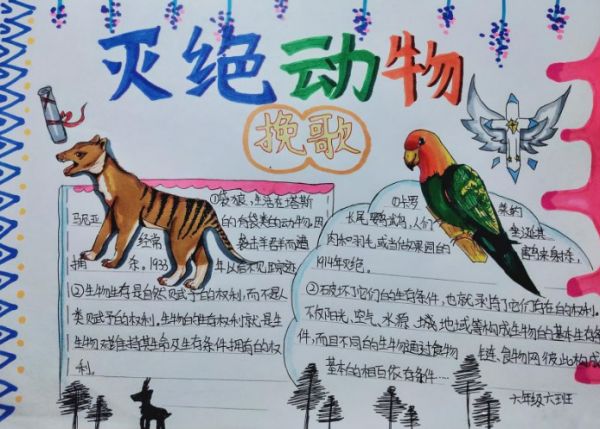 灭绝动物
挽歌
①袋狼,生活在塔斯
马尼亚的有袋类的动物,因
经常袭击羊群而遭
捕杀。1933年以后不见踪迹
②生物生存是自然赋予的权利,而不是人
类赋予的权利,生物的生存权利就是生
生物对维持其生命及生存条件拥有的权
利。
①卡罗莱的
长尾鹦鹉,人们
肉和羽毛或当做果园的害鸟来射杀,
1914年灭绝。
②破坏了它们的生存条件,也就剥夺了它们存在的权利。
不仅阳光、空气、水源、地域等构成生物的基本生存条
件,而且不同的生物通过食物链、食物网彼此构成
基本的相互依存条件…
六年级六班